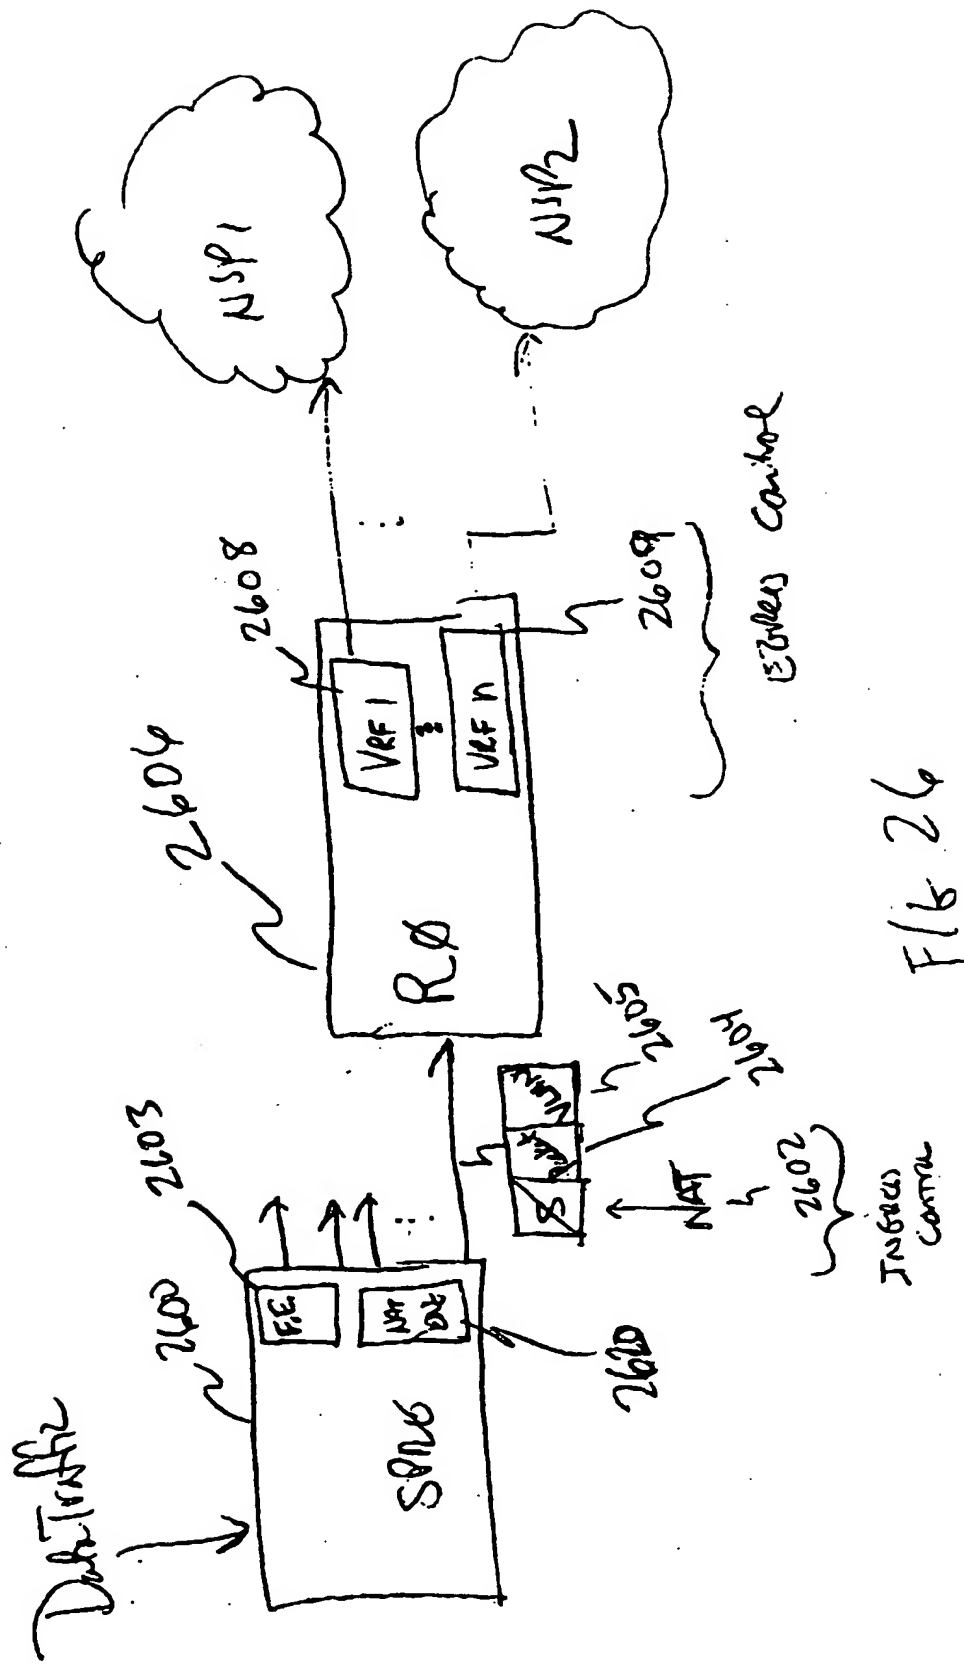 Data Traffic
2600
2603
F.E.
NAT
ENG
SPNG
2620
S
NAT
2602
INGRESS
Control
2604
2605
2606
RØ
VRF 1
VRF n
2608
2609
EGRESS Control
NSP1
NSP2
FIG 26